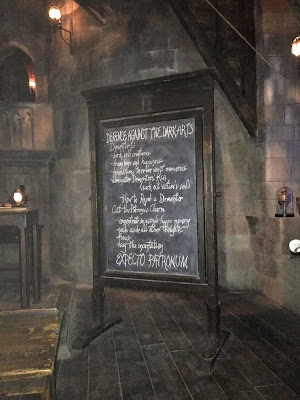 DEFENCE AGAINST THE DARK ARTS
Dementors
- dark, evil creatures
- drain hope and happiness
- remember worst memories
- Dementors' Kiss
(suck out victim's soul)
How to Repel a Dementor
Cast the Patronus Charm
- concentrate on single happy memory
- push aside all other thoughts
- focus
- say the incantation
EXPECTO PATRONUM